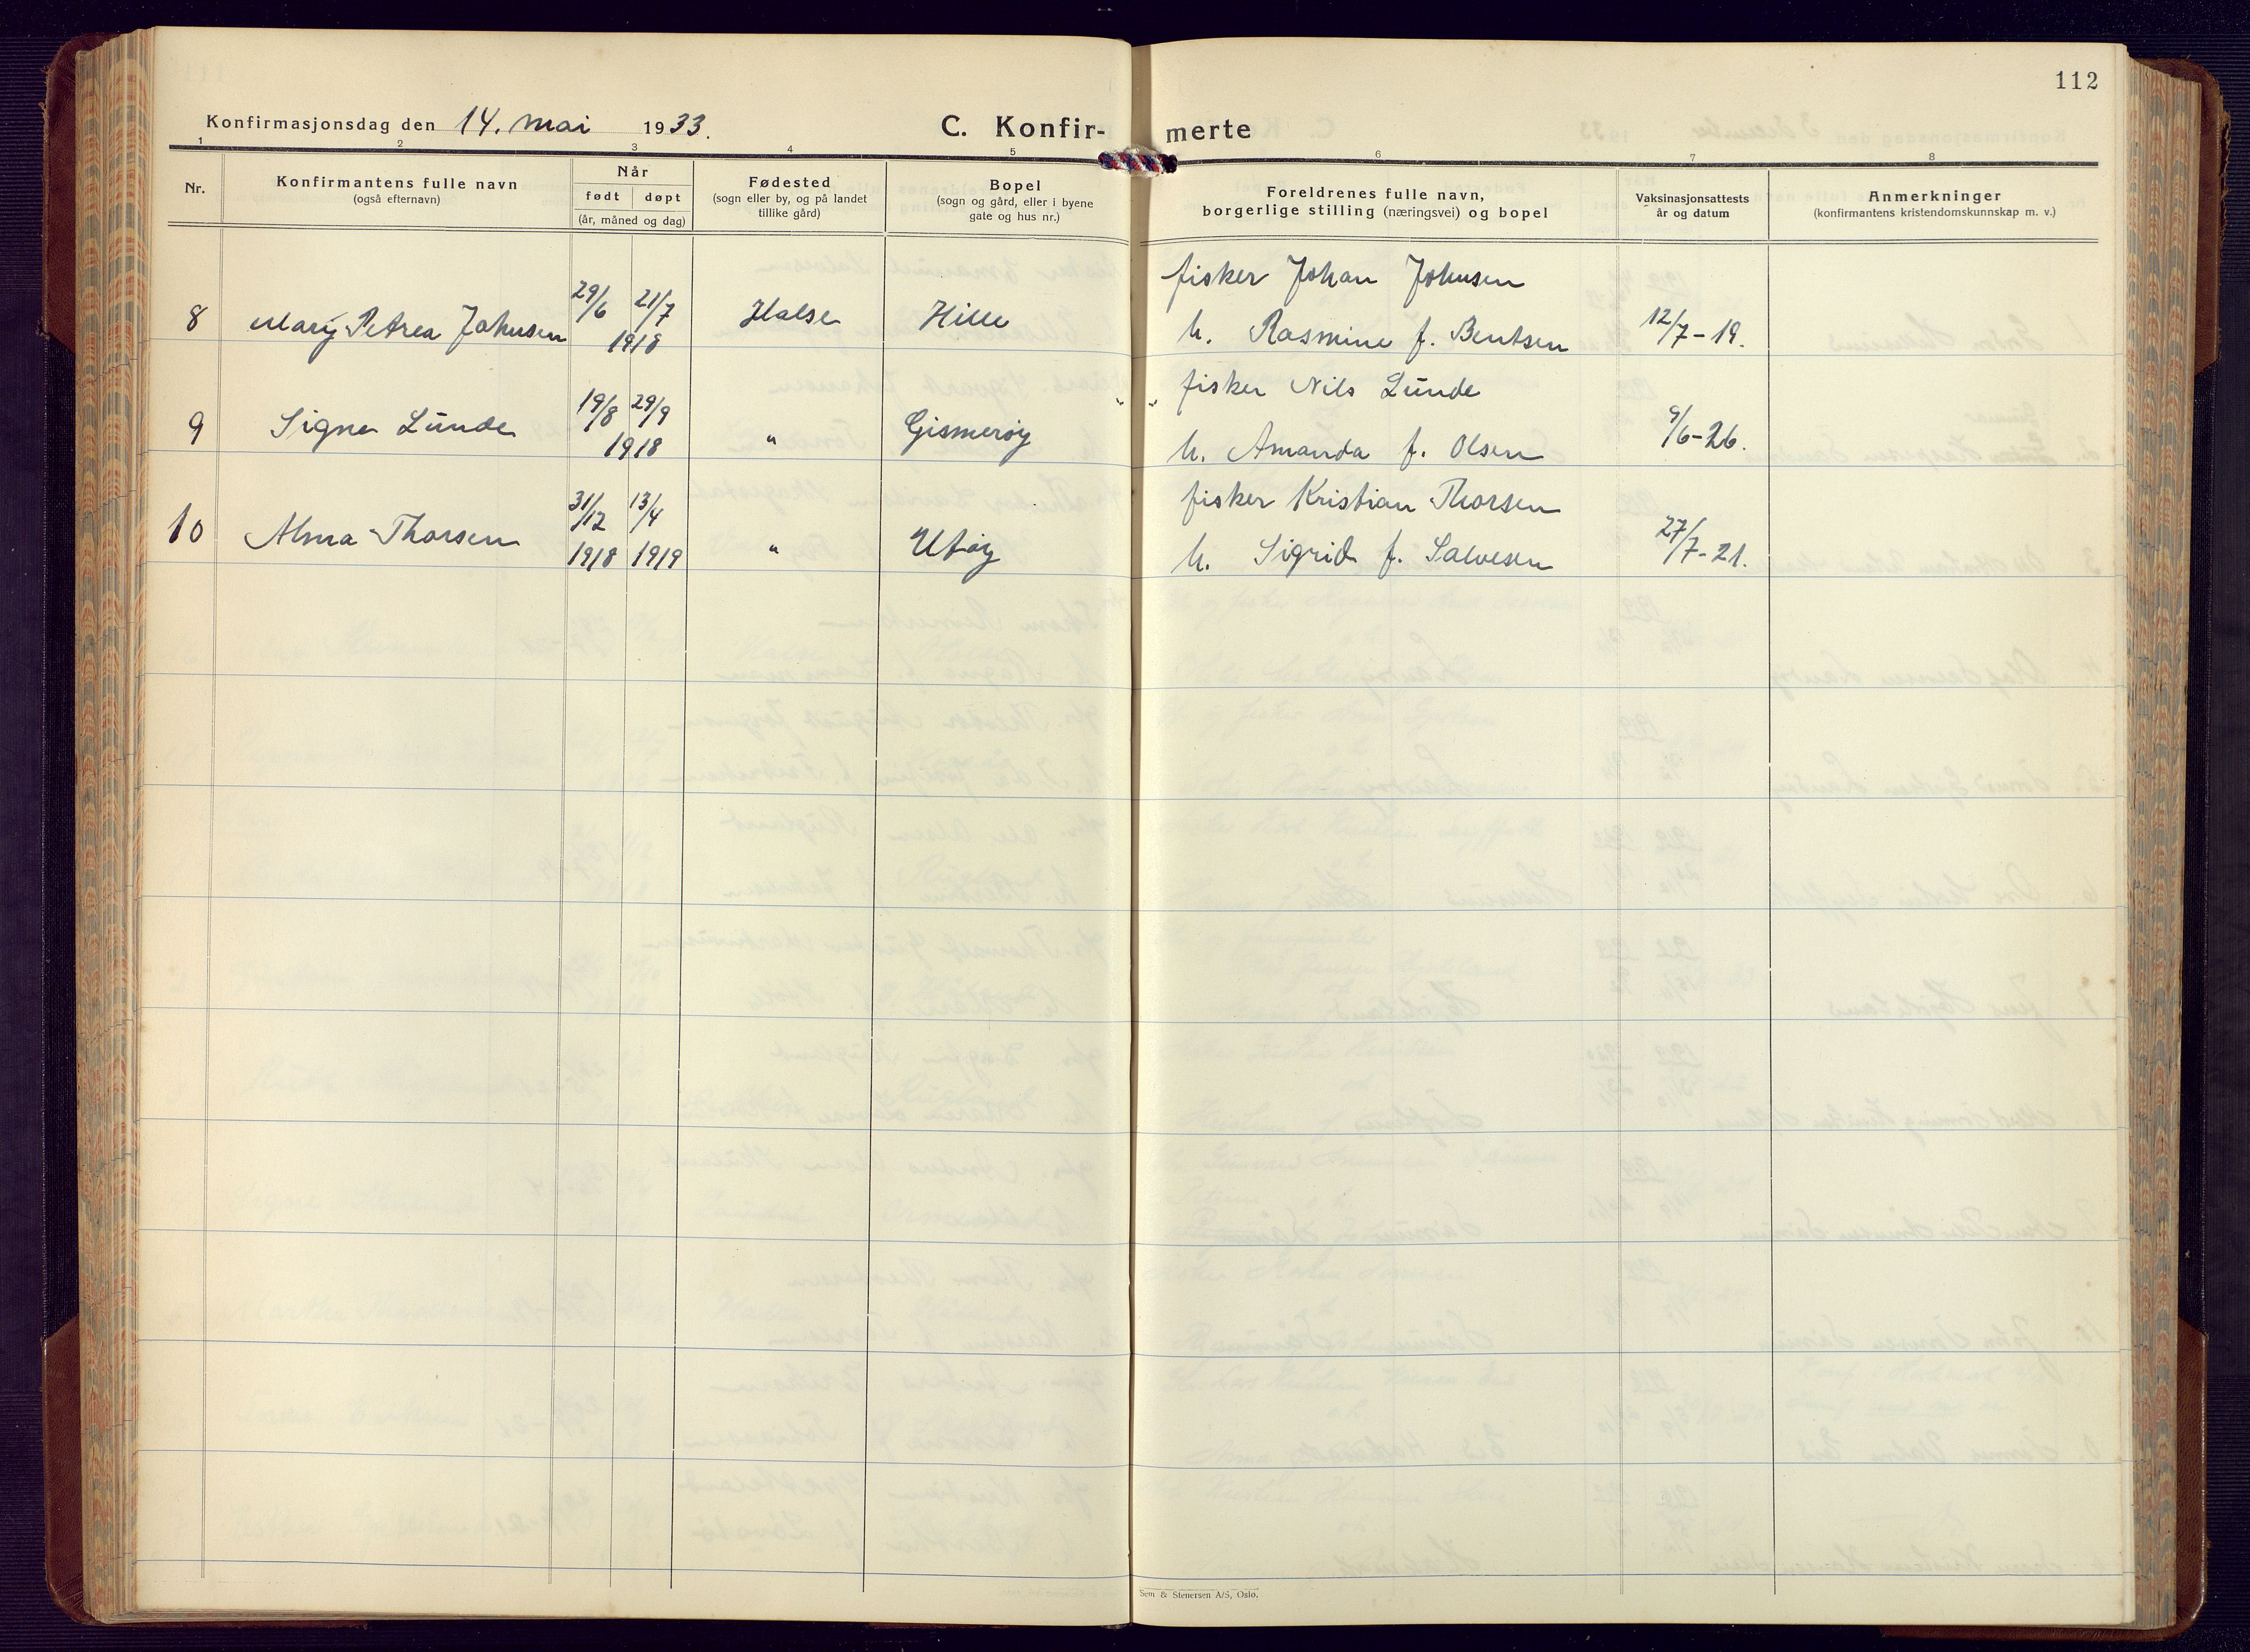 112
Konfirmasjonsdag den 14. mai 1933.
C. Konfir-
merte
1 2 3 4 5 6 7 8
Nr.
Konfirmantens fulle navn
(også efternavn)
Når
født døpt
(år, måned og dag)
Fødested
(sogn eller by, og på landet
tillike gård)
Bopel
(sogn og gård, eller i byene
gate og hus nr.)
Foreldrenes fulle navn,
borgerlige stilling (næringsvei) og bopel
Vaksinasjonsattests
år og datum
Anmerkninger
(konfirmantens kristendomskunnskap m. v.)
fisker Johan Johnsen
8 Mary Petrea Johnsen 29/6 21/7 Halse Hille
1918
h. Rasmine f. Bentsen 12/7-19.
" " fisker Nils Lunde
9 Signe Lunde 19/8 29/9 " Gismerøy
1918
h. Amanda f. Olsen 9/6-26.
fisker Kristian Thorsen
10 Alma Thorsen 31/12 13/4 " Utøy
1918 1919
h. Sigrid f. Salvesen 27/7-21.
Sem & Stenersen A/S, Oslo.